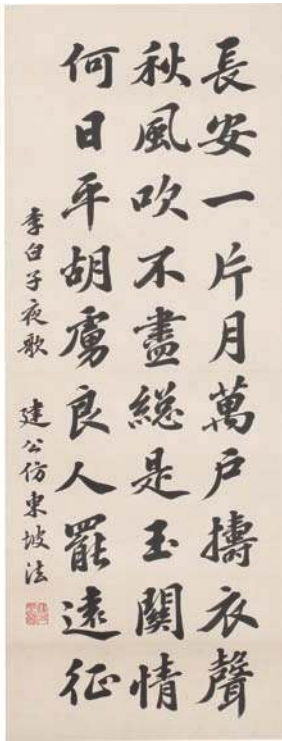 長安一片月萬戶擣衣聲
秋風吹不盡總是玉關情
何日平胡虜良人罷遠征
李白子夜歌 建公仿東坡法